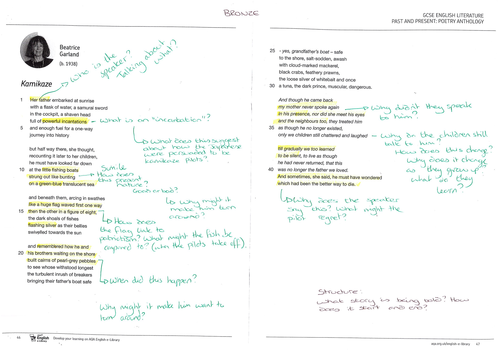 BRONZE
GCSE ENGLISH LITERATURE
PAST AND PRESENT: POETRY ANTHOLOGY
Beatrice
Garland
(b. 1938)
Who is the
speaker?
Talking about
what?
Kamikaze
1 Her father embarked at sunrise
with a flask of water, a samurai sword
in the cockpit, a shaven head
full of powerful incantations
5 and enough fuel for a one-way
journey into history
What is an "incantation"?
What does this suggest
about how the Japanese
were persuaded to be
kamikaze pilots?
but half way there, she thought,
recounting it later to her children,
he must have looked far down
10 at the little fishing boats
strung out like bunting
on a green-blue translucent sea
Simile
How does
this present
nature?
Good or bad?
and beneath them, arcing in swathes
like a huge flag waved first one way
15 then the other in a figure of eight,
the dark shoals of fishes
flashing silver as their bellies
swivelled towards the sun
Why might it
make him turn
around?
How does
the flag link to
patriotism? What might the fish be
compared to? (When the pilots take off).
and remembered how he and
20 his brothers waiting on the shore
built cairns of pearl-grey pebbles
to see whose withstood longest
the turbulent inrush of breakers
bringing their father's boat safe
When did this happen?
Why might it make him want to
turn around?
25 - yes, grandfather's boat – safe
to the shore, salt-sodden, awash
with cloud-marked mackerel,
black crabs, feathery prawns,
the loose silver of whitebait and once
30 a tuna, the dark prince, muscular, dangerous.
And though he came back
my mother never spoke again
in his presence, nor did she meet his eyes
and the neighbours too, they treated him
35 as though he no longer existed,
only we children still chattered and laughed
Why didn't they speak
to him?
Why do the children still
talk to him?
How does this change?
till gradually we too learned
to be silent, to live as though
he had never returned, that this
40 was no longer the father we loved.
And sometimes, she said, he must have wondered
which had been the better way to die.
Why does it change
as they grow up
what do they
learn?
Why does the speaker
say this? What might the
pilot regret?
Structure:
What story is being told? How
does it start and end?
English
Develop your learning on AQA English e-Library
aqa.org.uk/english-e-library 47